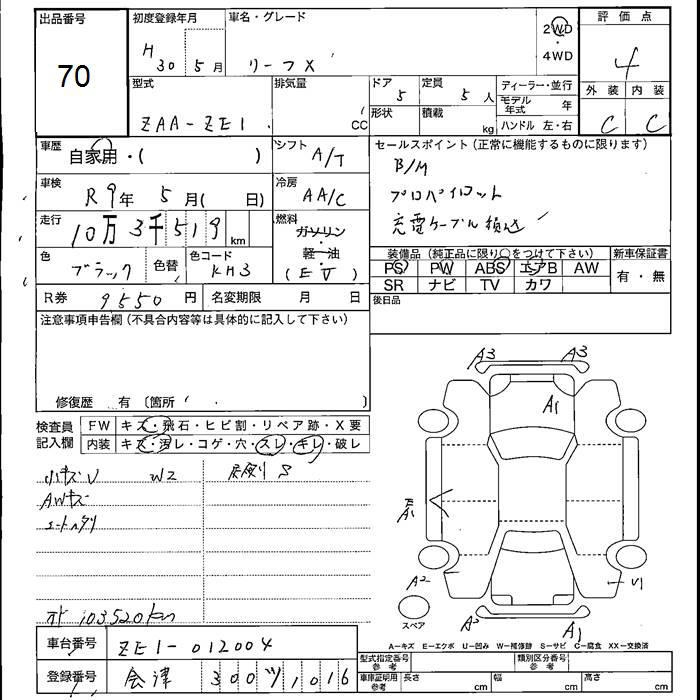 出品番号
70
初度登録年月
H 30 5 月
車名・グレード
リーフ X
2WD
・
4WD
評価点
4
外装 内装
C C
型式
ZAA-ZE1
排気量
CC
ドア 5
形状
定員 5 人
積載 kg
ディーラー・並行
モデル年式 年
ハンドル 左・右
車歴
自家用・( )
シフト A/T
車検
R 9 年 5 月( 日)
冷房 AA/C
走行
10万 3千 5 1 9 km
燃料
ガソリン
・
軽油
(EV)
色
ブラック
色替
色コード
KH3
R券 9550 円
名変期限 月 日
セールスポイント(正常に機能するものに限ります)
B/M
プロパイロット
充電ケーブル積込
装備品(純正品に限り○をつけて下さい)
PS PW ABS エアB AW
SR ナビ TV カワ
新車保証書
有・無
後日品
注意事項申告欄(不具合内容等は具体的に記入して下さい)
修復歴 有 〔箇所 〕
検査員
記入欄
FW キズ・飛石・ヒビ割・リペア跡・X要
内装 キズ・汚レ・コゲ・穴・スレ・キレ・破レ
小キズ U W2
AWキズ
シートヘタリ
オド 103520km
A3 A3
A1
A1
A2
U1
A2
A1
スペア
A-キズ E-エクボ U-凹み W-補修跡 S-サビ C-腐食 XX-交換済
車台番号 ZE1-012004
登録番号 会津 300 ツ 1016
型式指定番号
参考
類別区分番号
参考
車庫証明用
参考
長さ cm
幅 cm
高さ cm